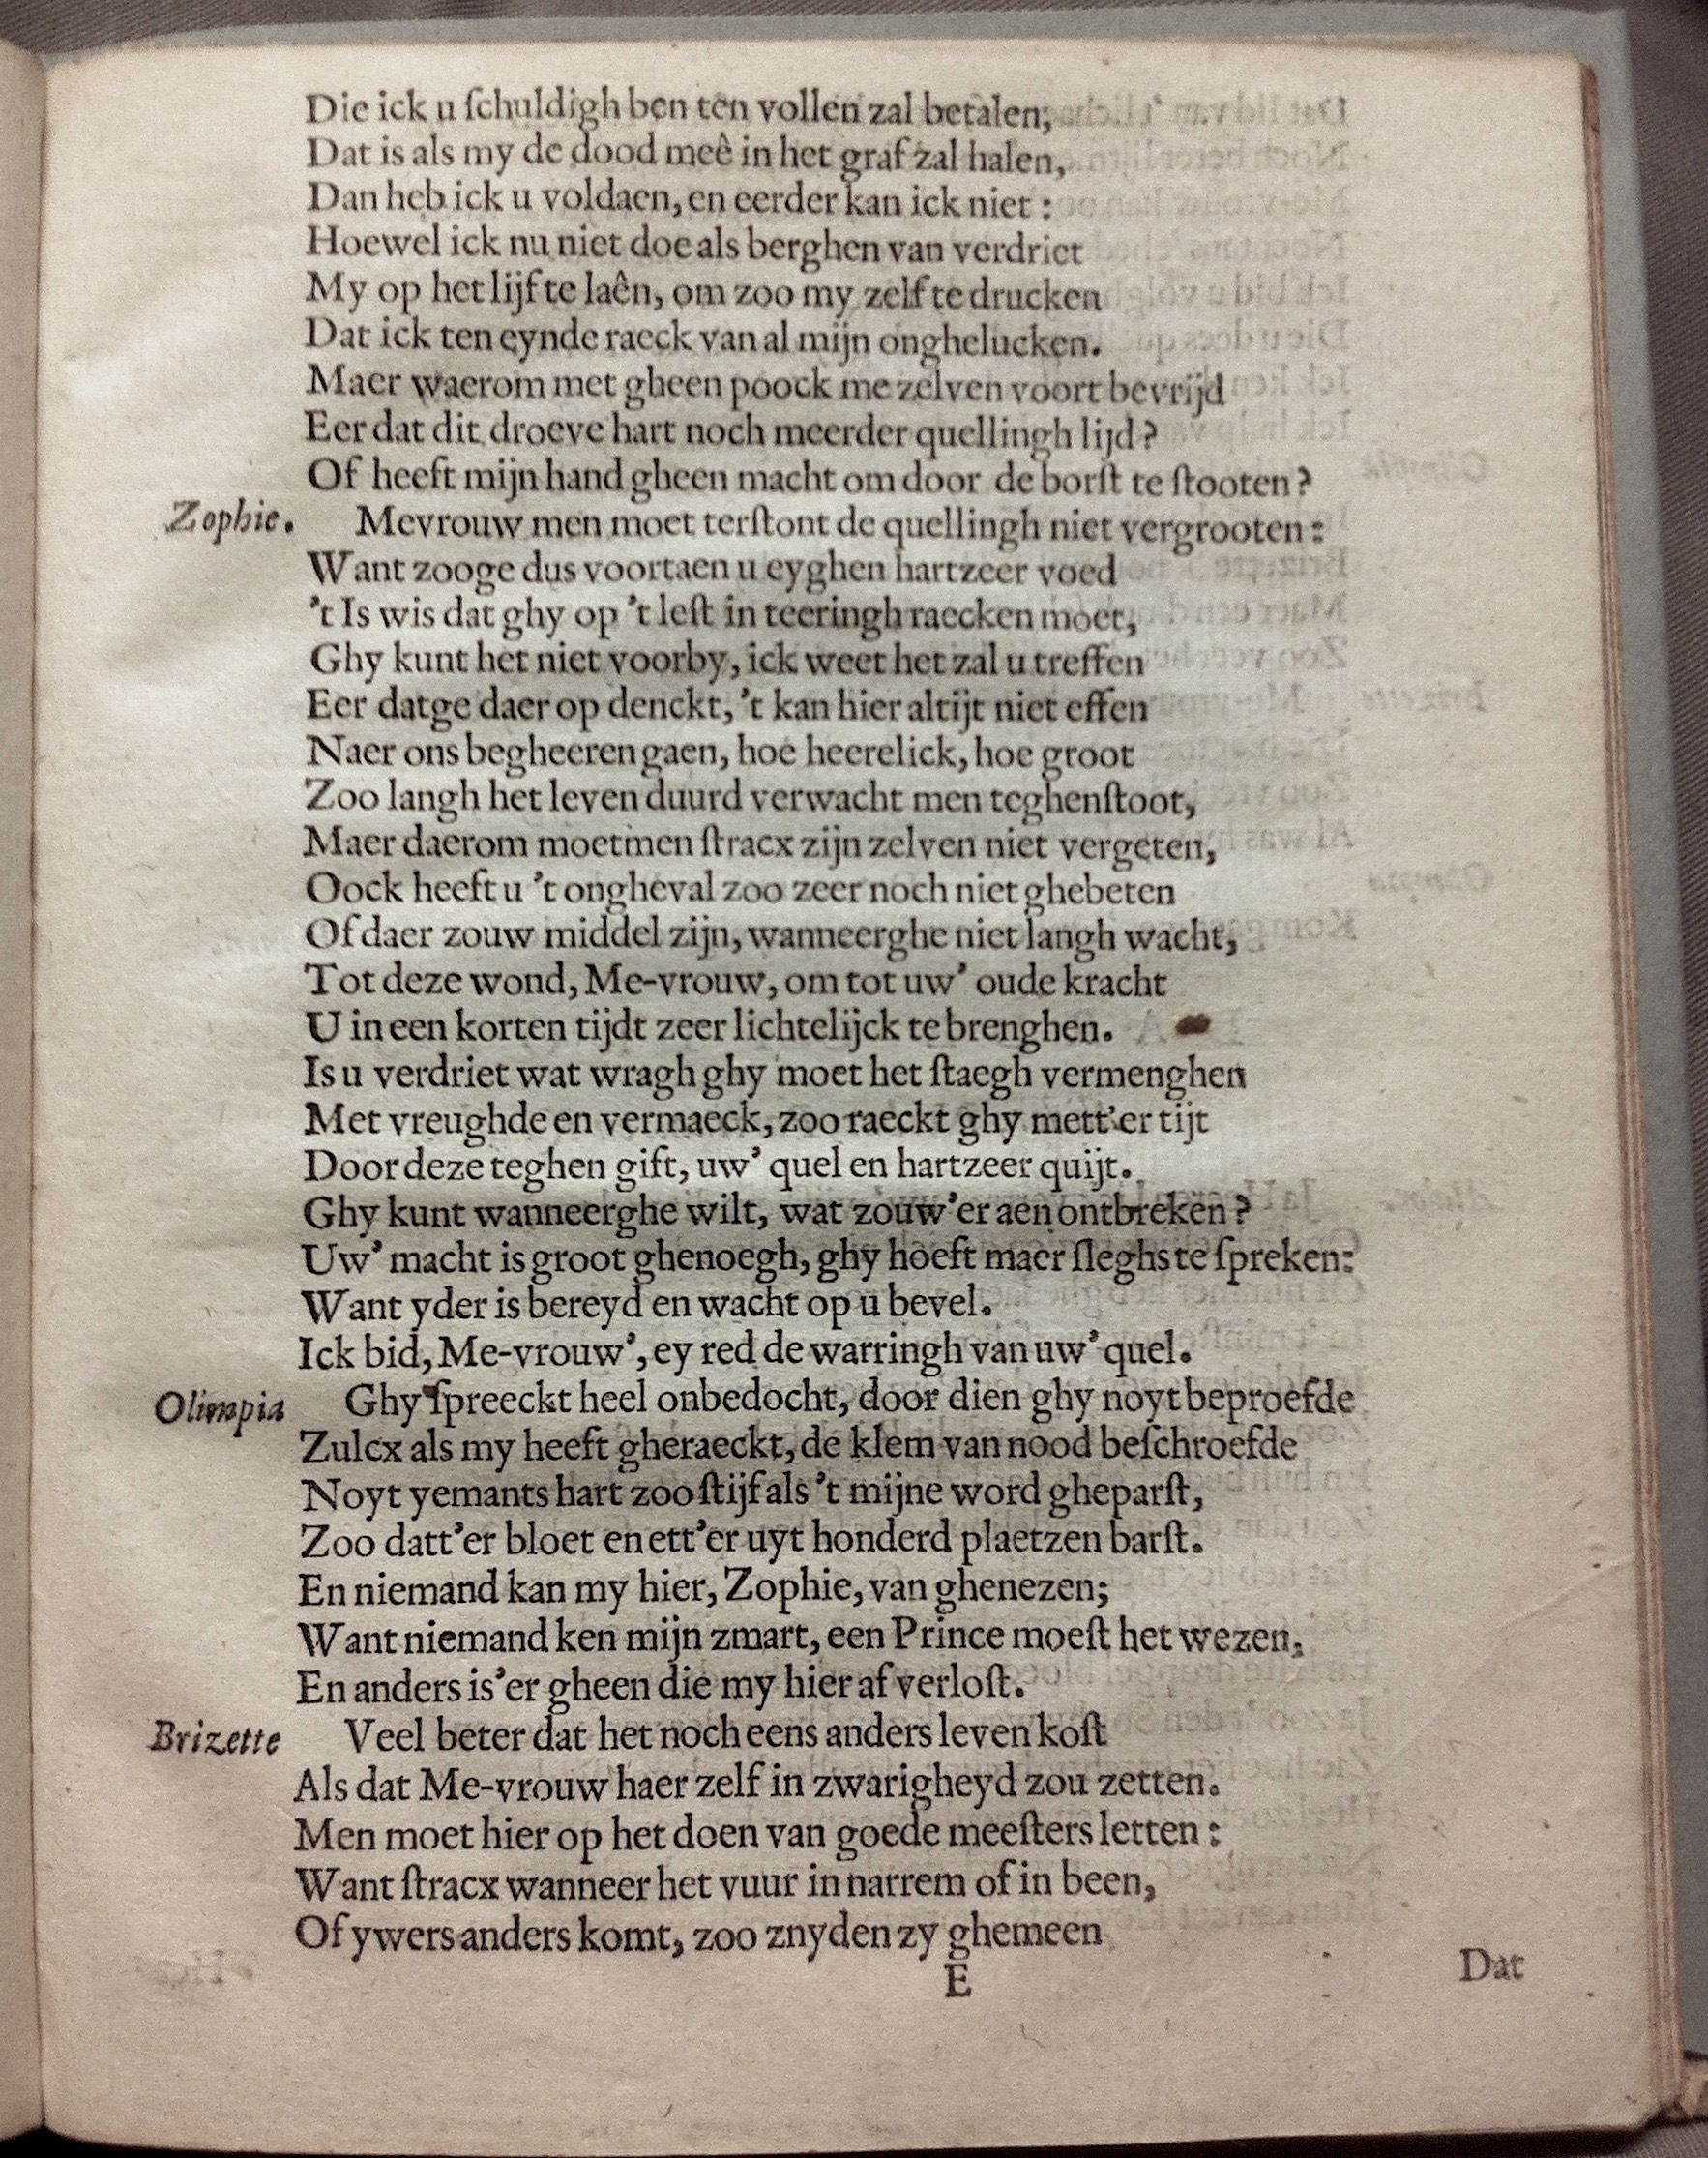 Die ick u ſchuldigh ben ten vollen zal betalen;
Dat is als my de dood meê in het graf zal halen,
Dan heb ick u voldaen, en eerder kan ick niet :
Hoewel ick nu niet doe als berghen van verdriet
My op het lijf te laên, om zoo my zelf te drucken
Dat ick ten eynde raeck van al mijn onghelucken.
Maer waerom met gheen poock me zelven voort bevrijd
Eer dat dit droeve hart noch meerder quellingh lijd ?
Of heeft mijn hand gheen macht om door de borſt te ſtooten ?
Zophie. Mevrouw men moet terſtont de quellingh niet vergrooten :
Want zooge dus voortaen u eyghen hartzeer voed
't Is wis dat ghy op 't leſt in teeringh raecken moet,
Ghy kunt het niet voorby, ick weet het zal u treffen
Eer datge daer op denckt, 't kan hier altijt niet effen
Naer ons begheeren gaen, hoe heerelick, hoe groot
Zoo langh het leven duurd verwacht men teghenſtoot,
Maer daerom moetmen ſtracx zijn zelven niet vergeten,
Oock heeft u 't ongheval zoo zeer noch niet ghebeten
Of daer zouw middel zijn, wanneerghe niet langh wacht,
Tot deze wond, Me-vrouw, om tot uw' oude kracht
U in een korten tijdt zeer lichtelijck te brenghen.
Is u verdriet wat wragh ghy moet het ſtaegh vermenghen
Met vreughde en vermaeck, zoo raeckt ghy mett'er tijt
Door deze teghen gift, uw' quel en hartzeer quijt.
Ghy kunt wanneerghe wilt, wat zouw'er aen ontbreken ?
Uw' macht is groot ghenoegh, ghy hoeft maer ſleghs te ſpreken:
Want yder is bereyd en wacht op u bevel.
Ick bid, Me-vrouw', ey red de warringh van uw' quel.
Olimpia Ghy ſpreeckt heel onbedocht, door dien ghy noyt beproefde
Zulcx als my heeft gheraeckt, de klem van nood beſchroefde
Noyt yemants hart zoo ſtijf als 't mijne word gheparſt,
Zoo datt'er bloet en ett'er uyt honderd plaetzen barſt.
En niemand kan my hier, Zophie, van ghenezen;
Want niemand ken mijn zmart, een Prince moeſt het wezen,
En anders is'er gheen die my hier af verloſt.
Brizette Veel beter dat het noch eens anders leven koſt
Als dat Me-vrouw haer zelf in zwarigheyd zou zetten.
Men moet hier op het doen van goede meeſters letten :
Want ſtracx wanneer het vuur in narrem of in been,
Of ywers anders komt, zoo znyden zy ghemeen
E
Dat